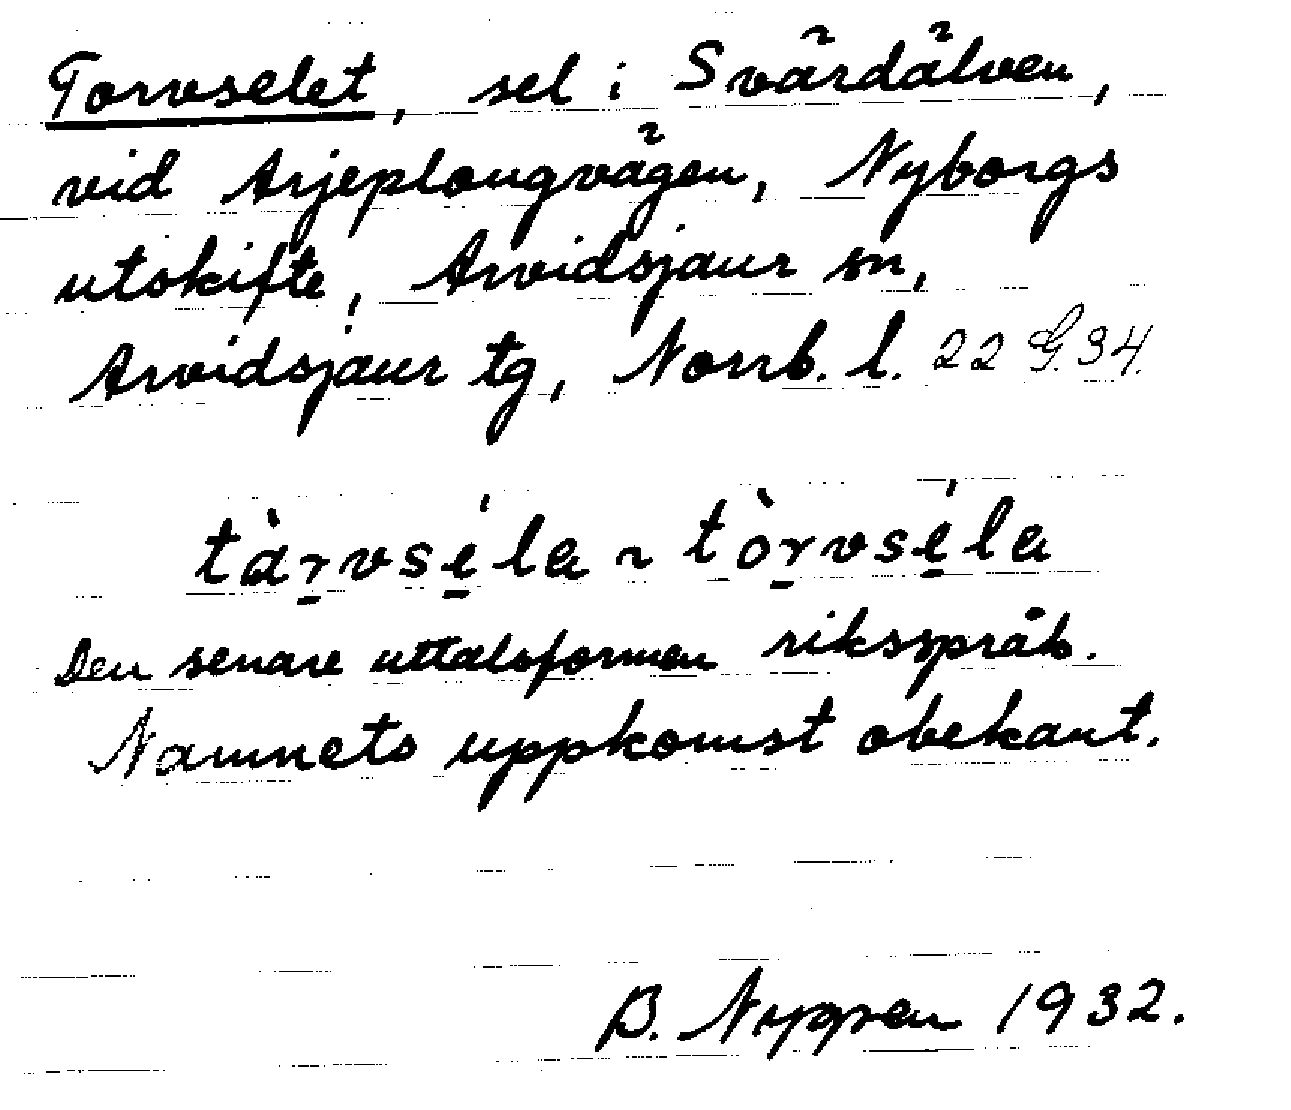 Torvselet, sel i Svärdälven,
vid Arjeplougvägen, Nyborgs
utskifte, Arvidsjaur sn,
Arvidsjaur tg, Norrb. l. 22 G. 34.
tàr̠vsé̠la ~ tòr̠vsé̠la
Den senare uttalsformen riksspråk.
Namnets uppkomst obekant.
B. Nygren 1932.